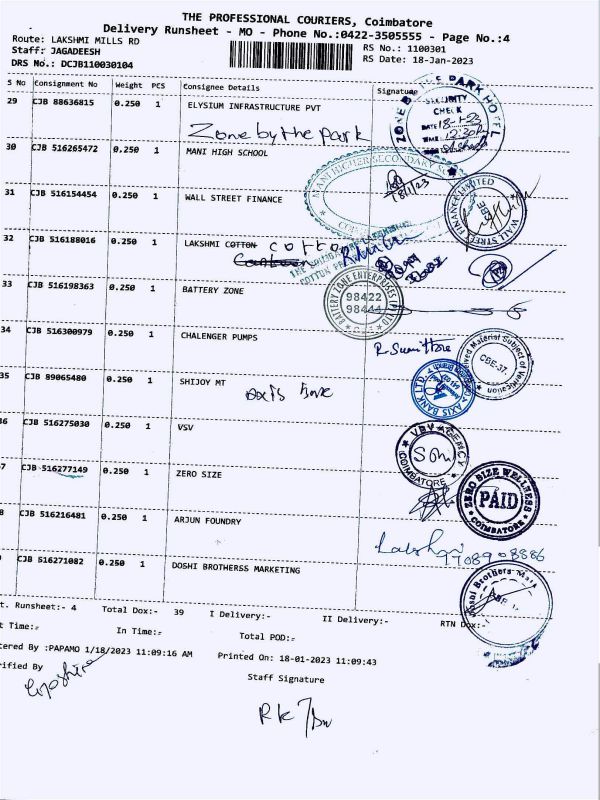 THE PROFESSIONAL COURIERS, Coimbatore
Delivery Runsheet - MO - Phone No.:0422-3505555 - Page No.:4
Route: LAKSHMI MILLS RD
RS No.: 1100301
Staff: JAGADEESH
RS Date: 18-Jan-2023
DRS No.: DCJB110030104
S No Consignment No Weight PCS Consignee Details Signature
29 CJB 88636815 0.250 1 ELYSIUM INFRASTRUCTURE PVT
Zone by the Park
ZONE BY THE PARK HOTEL
SECURITY
CHECK
DATE 18-1-23
TIME 12:30
30 CJB 516265472 0.250 1 MANI HIGH SCHOOL
MANI HIGHER SECONDARY
18/1/23
31 CJB 516154454 0.250 1 WALL STREET FINANCE
WALL STREET FINANCE LIMITED
CBE
32 CJB 516188016 0.250 1 LAKSHMI COTTON cotton
33 CJB 516198363 0.250 1 BATTERY ZONE
BATTERY ZONE ENTERPRISES
98422
98444
34 CJB 516300979 0.250 1 CHALENGER PUMPS
Material Subject of Verification
CBE-37.
35 CJB 89065480 0.250 1 SHIJOY MT
Axis Bank
AXIS BANK LTD.
36 CJB 516275030 0.250 1 VSV
COIMBATORE
37 CJB 516277149 0.250 1 ZERO SIZE
ZERO SIZE WELLNESS
PAID
COIMBATORE
38 CJB 516216481 0.250 1 ARJUN FOUNDRY
7708908886
39 CJB 516271082 0.250 1 DOSHI BROTHERSS MARKETING
t. Runsheet:- 4 Total Dox:- 39 I Delivery:- II Delivery:- RTN Dox:-
t Time:- In Time:- Total POD:-
tered By :PAPAMO 1/18/2023 11:09:16 AM Printed On: 18-01-2023 11:09:43
rified By
Staff Signature